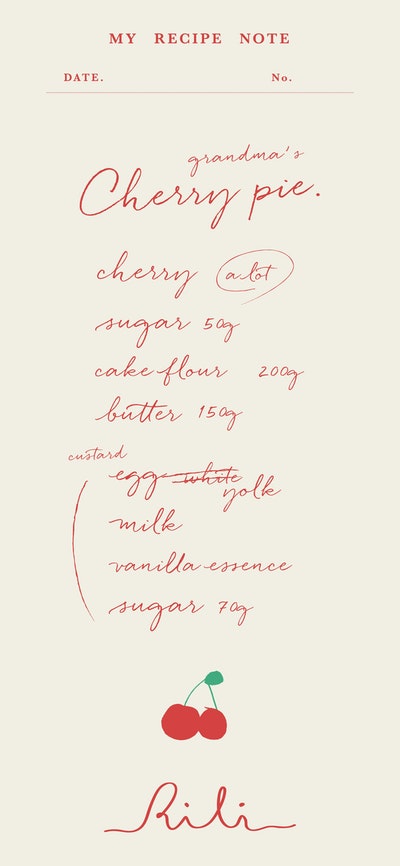 MY RECIPE NOTE
DATE. No.
grandma's
Cherry pie.
cherry a lot
sugar 50g
cake flour 200g
butter 150g
custard
egg white
yolk
milk
vanilla essence
sugar 70g
Rili